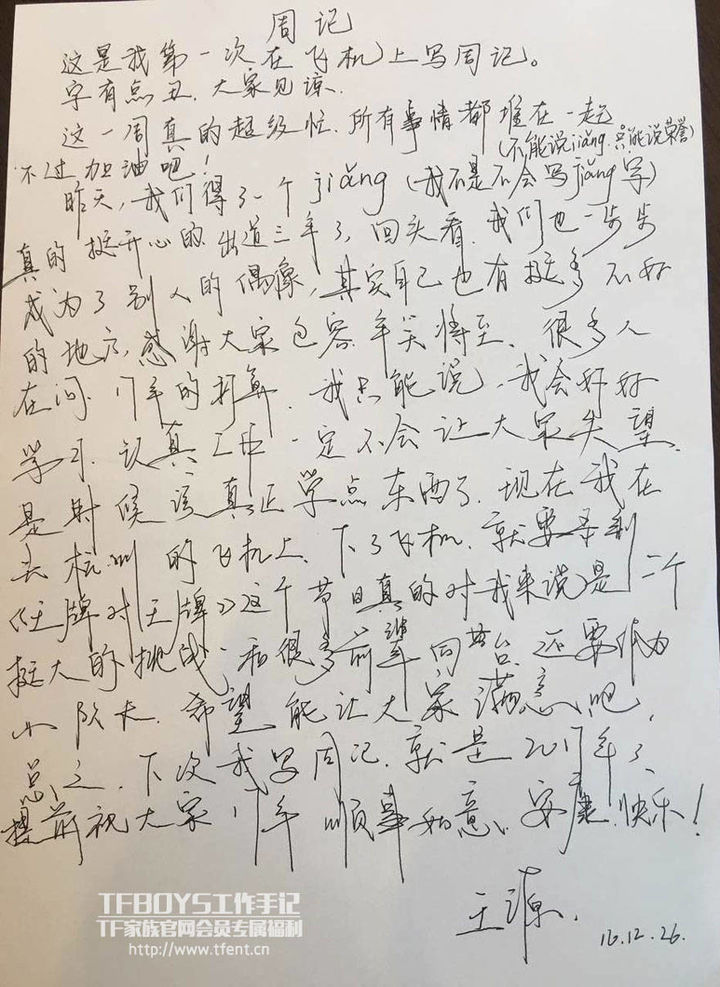 周记
这是我第一次在飞机上写周记。
字有点丑.大家见谅.
这一周真的超级忙.所有事情都堆在一起
(不能说jiǎng.只能说荣誉)
不过加油吧!
昨天,我们得了一个jiǎng(我不是不会写jiǎng字)
真的挺开心的.出道三年了,回头看.我们也一步步
成为了别人的偶像,其实自己也有挺多不好
的地方,感谢大家包容.年关将至.很多人
在问.17年的打算.我只能说,我会好好
学习.认真工作.一定不会让大家失望.
是时候该真正学点东西了.现在我在
去杭州的飞机上.下了飞机.就要录制
《王牌对王牌》这个节目真的对我来说是一个
挺大的挑战.和很多前辈同台.还要作为
小队长.希望能让大家满意吧.
总之.下次我写周记.就是2017年了、
提前祝大家17年顺事如意、安康.快乐!
王源.
16.12.26.
TFBOYS工作手记
TF家族官网会员专属福利
http://www.tfent.cn